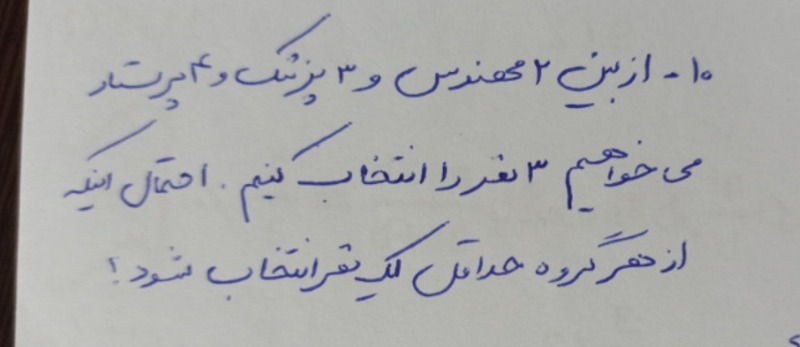 ۱۰- از بین ۲ مهندس و ۳ پزشک و ۴ پرستار
می خواهیم ۳ نفر را انتخاب کنیم. احتمال اینکه
از هر گروه حداقل یک نفر انتخاب شود؟